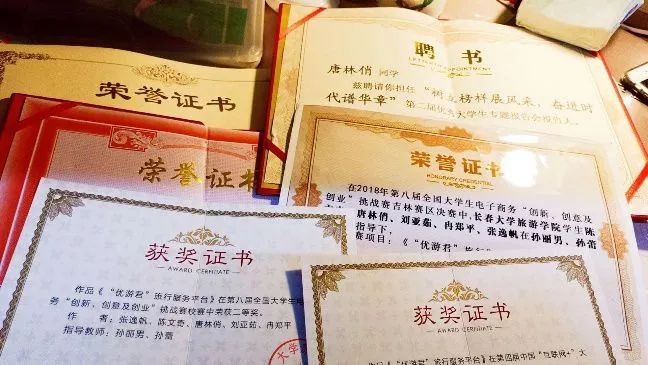 荣誉证书
聘书
LETTER OF APPOINTMENT
唐林俏 同学
兹聘请你担任“树立榜样展风采，奋进时
代谱华章”第二届优秀大学生专题报告会报告人。
荣誉证书
荣誉证书
HONORARY CREDENTIAL
在2018年第八届全国大学生电子商务“创新、创意及
创业”挑战赛吉林赛区决赛中，长春大学旅游学院学生陈
唐林俏、刘亚茹、冉郑平、张逸帆在孙丽男、孙蕾
指导下，
赛项目：《“优游君”旅行
获奖证书
AWARD CERFIUATE
作品《“优游君”旅行服务平台》在第八届全国大学生电
务“创新、创意及创业”挑战赛校赛中荣获二等奖。
作 者：张逸帆、陈文奇、唐林俏、刘亚茹、冉郑平
指导教师：孙丽男、孙蕾
大学
获奖证书
AWARD CERFIUATE
作品《“优游君”旅行服务平台》在第四届中国“互联网+”大